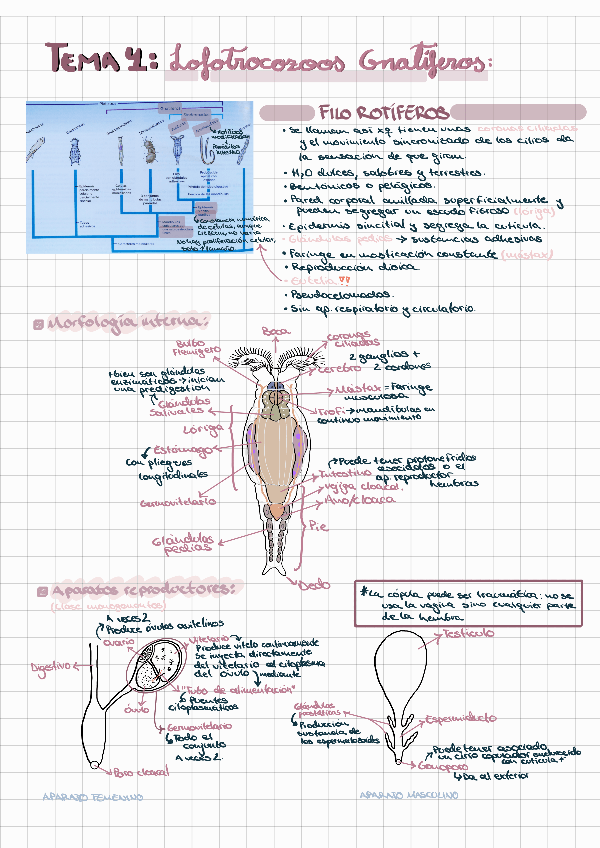 TEMA 4: Lofotrocozoos Gnatíferos:
FILO ROTÍFEROS
• Se llaman así xq tienen unas coronas ciliadas
y el movimiento sincronizado de los cilios da
la sensación de que giran.
• H2O dulces, salobres y terrestres.
• Bentónicos o pelágicos.
• Pared corporal anillada superficialmente y
pueden segregar un escudo fibroso (lóriga)
• Epidermis sincitial y segrega la cutícula.
• Glándulas pedias → sustancias adhesivas
• Faringe en masticación constante (mástax)
• Reproducción dioica
• Eutelia !!
• Pseudocelomados.
• Sin ap. respiratorio y circulatorio.
Constancia numérica
de células, aunque
crezcan, no varía
No hay proliferación celular,
solo ↑ tamaño
Morfología interna:
Boca
Bulbo
Flemígero
coronas
ciliadas
2 ganglios +
2 cordones
Cerebro
también son glándulas
enzimáticas → inician
una predigestión
Glándulas
Salivales
Mástax = Faringe
musculosa
Trofi → mandíbulas en
continuo movimiento
Lóriga
Estómago
Con pliegues
longitudinales
Puede tener protonefridios
asociados o el
ap. reproductor
hembras
Intestino
Vejiga cloacal.
Ano/cloaca
Germovitelario
Pie
Glándulas
pedias
Dedo
Aparatos reproductores:
(clase monogonontos)
*La cópula puede ser traumática: no se
usa la vagina sino cualquier parte
de la hembra
A veces 2
Produce óvulos
Ovario
Vitelario
Produce vitelo continuamente
Se inyecta directamente
del vitelario al citoplasma
del óvulo mediante
"Tubo de alimentación"
Puentes
citoplasmáticos
Digestivo
óvulo
Germovitelario
Todo el
conjunto
A veces 2.
Poro cloacal
APARATO FEMENINO
Testículo
Glándulas
prostáticas
Producción
sustancia de
los espermatozoides
Espermiducto
Puede tener asociado
un cirro copulador endurecido
con cutícula
Gonoporo
Da al exterior
APARATO MASCULINO